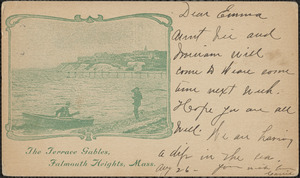 Dear Emma
Aunt Liv and
Miriam will
come to Weare some
time next week.
Hope you are all
well. We are having
a dip in the sea.
Aug 26 - 
The Terrace Gables,
Falmouth Heights, Mass.